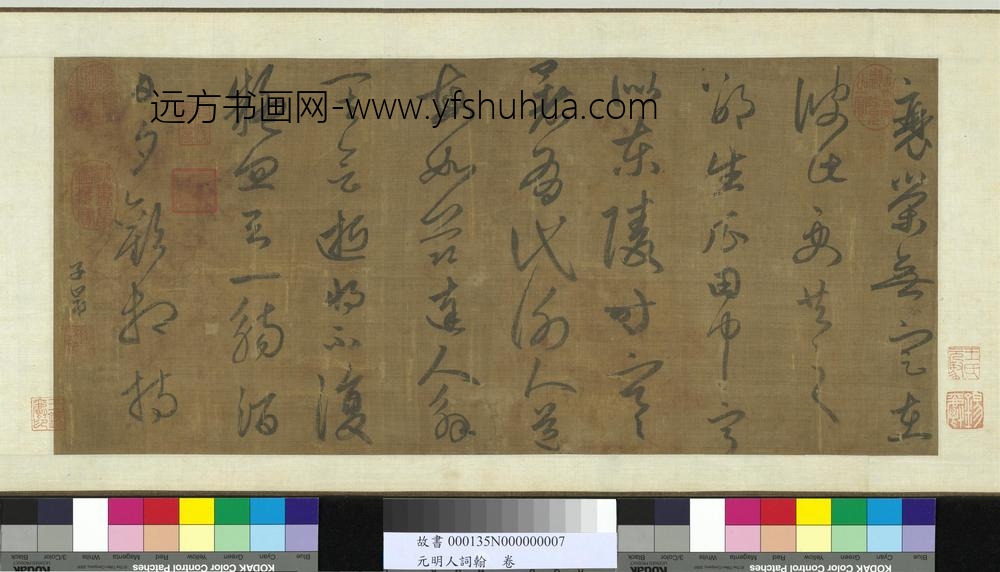 衰榮無定在
彼此更共之
邵生瓜田中寧
似東陵時寒
暑有代謝人道
每如茲達人解
其會逝將不復
疑忽與一觴酒
日夕歡相持
子昂
远方书画网-www.yfshuhua.com
王氏
故書 000135N000000007
元明人詞翰 卷
Black
3/Color
White
Magenta
Red
Yellow
Green
Cyan
Blue
KODAK Color Control Patches
Black
3/Color
White
Magenta
Red
Yellow
Green
Cyan
Blue
KODAK Color Control Patches